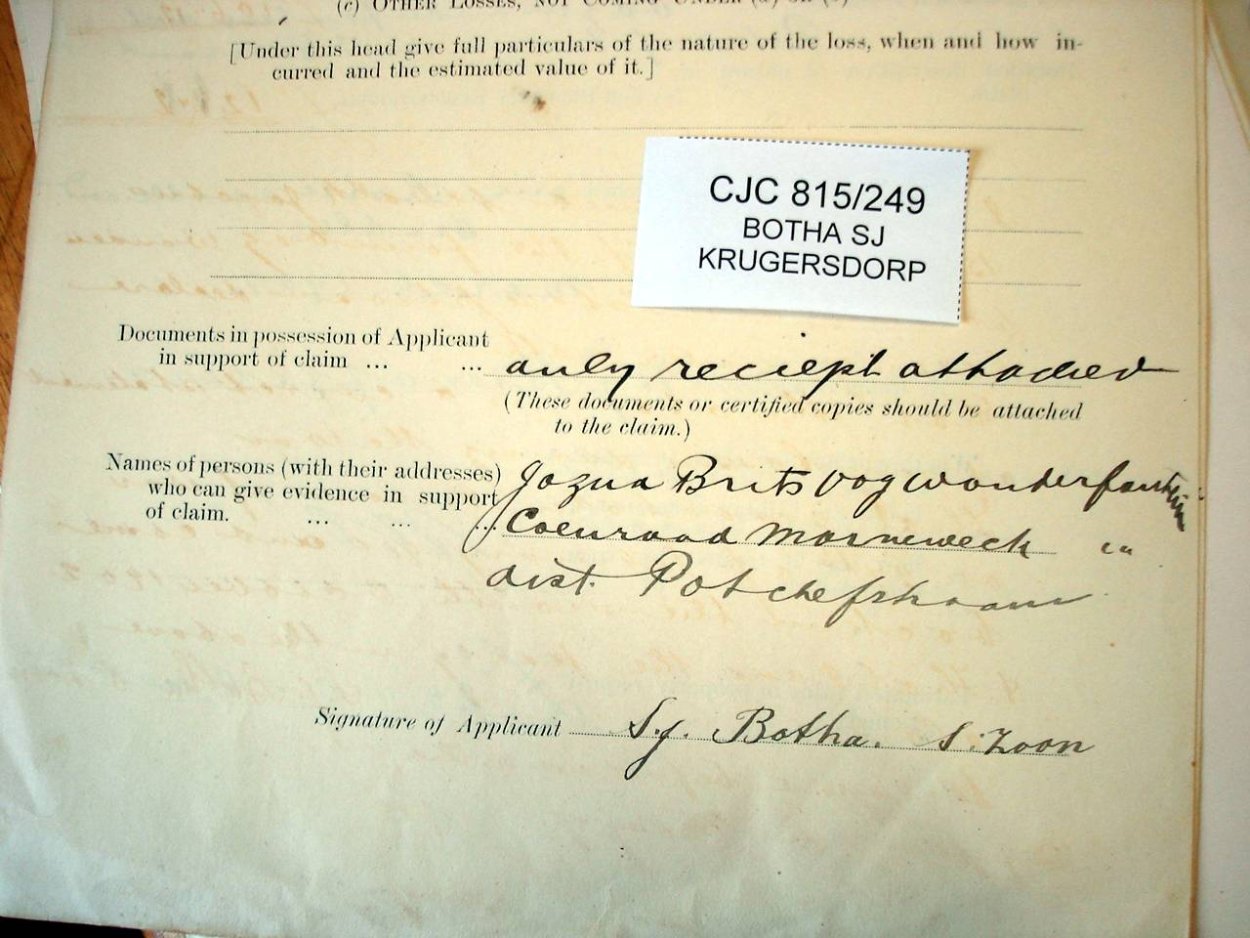 (c) OTHER LOSSES, NOT COMING UNDER (a) OR (b)
[Under this head give full particulars of the nature of the loss, when and how in-
curred and the estimated value of it.]
CJC 815/249
BOTHA SJ
KRUGERSDORP
Documents in possession of Applicant
in support of claim ... ... only reciept attached
(These documents or certified copies should be attached
to the claim.)
Names of persons (with their addresses) Jozua Brits Wonderfontein
who can give evidence in support
of claim. ... ... ... Coenraad Morneweck "
dist. Potchefstroom
Signature of Applicant S.J. Botha. S. Zoon